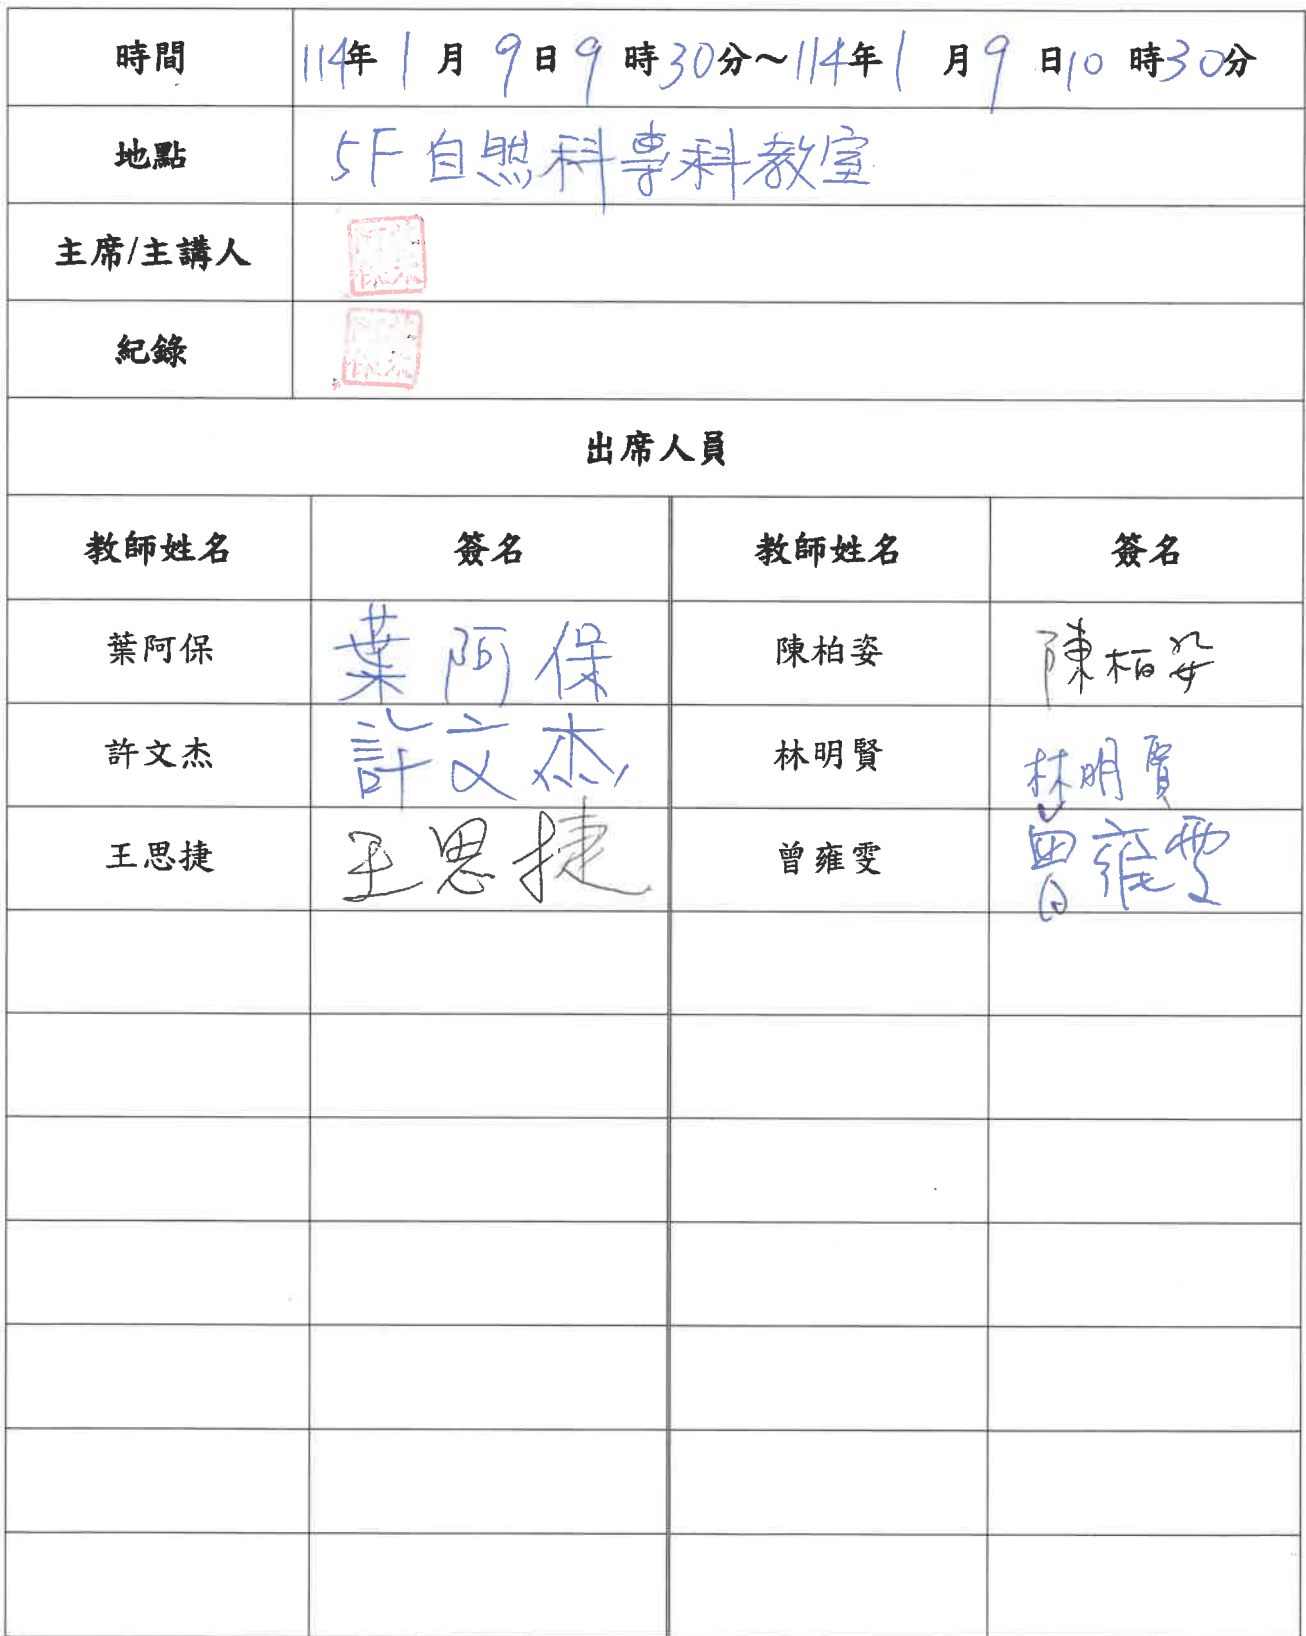 時間 114年 1 月 9日 9 時30分～114年 1 月 9 日10 時30分
地點 5F 自然科專科教室
主席/主講人
紀錄
出席人員
教師姓名 簽名 教師姓名 簽名
葉阿保 葉阿保 陳柏姿 陳柏姿
許文杰 許文杰 林明賢 林明賢
王思捷 王思捷 曾雍雯 曾雍雯